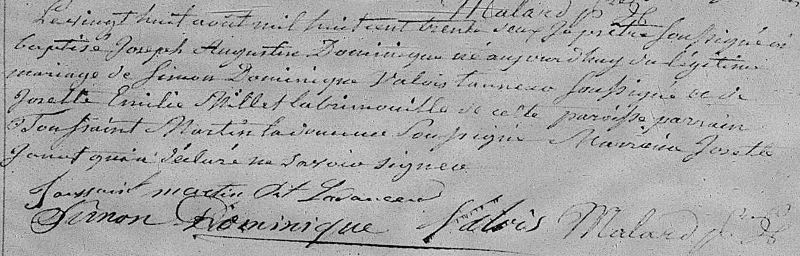 Malard ptre
Le vingt huit août mil huit cent trente deux Je prêtre soussigné ai
baptisé Joseph Augustin Dominique né aujourdhuy du légitime
mariage de Simon Dominique Valois tanneur soussigné et de
Josette Emilie Millet de cette paroisse parrain
Toussaint Martin soussigné Marraine Josette
qui a déclaré ne savoir signer
Toussaint martin dit
Simon Dominique Valois Malard ptre